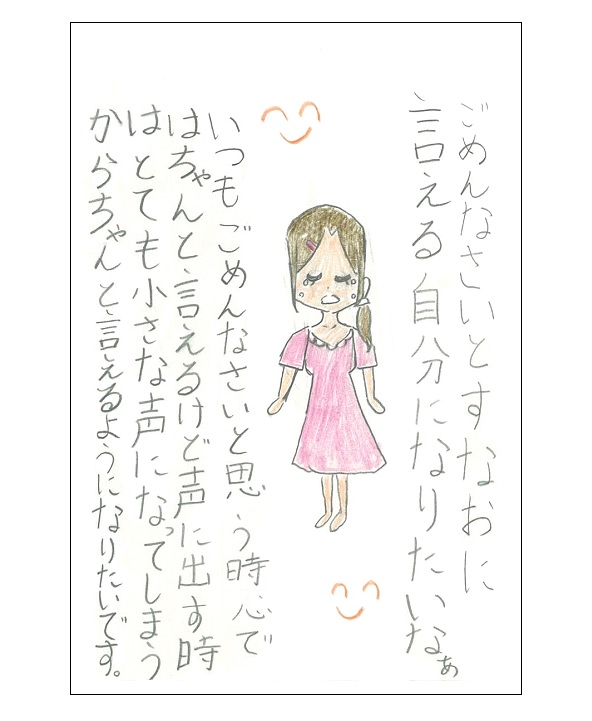 ごめんなさいとすなおに
言える自分になりたいなぁ
いつもごめんなさいと思う時心で
はちゃんと言えるけど声に出す時
はとても小さな声になってしまう
からちゃんと言えるようになりたいです。